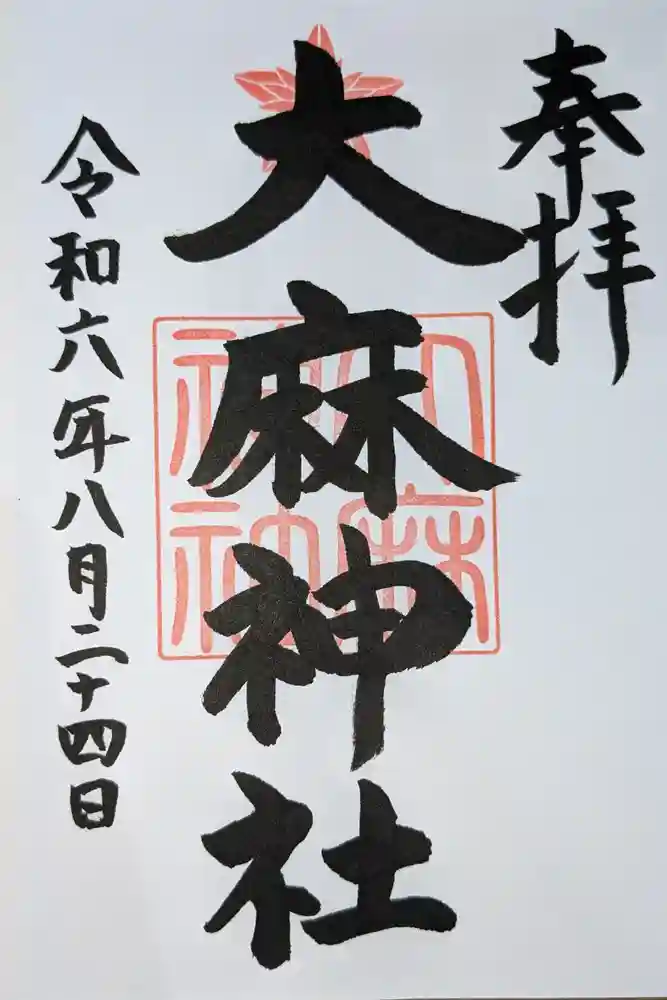 奉拝
大麻神社
大麻神社
令和六年八月二十四日